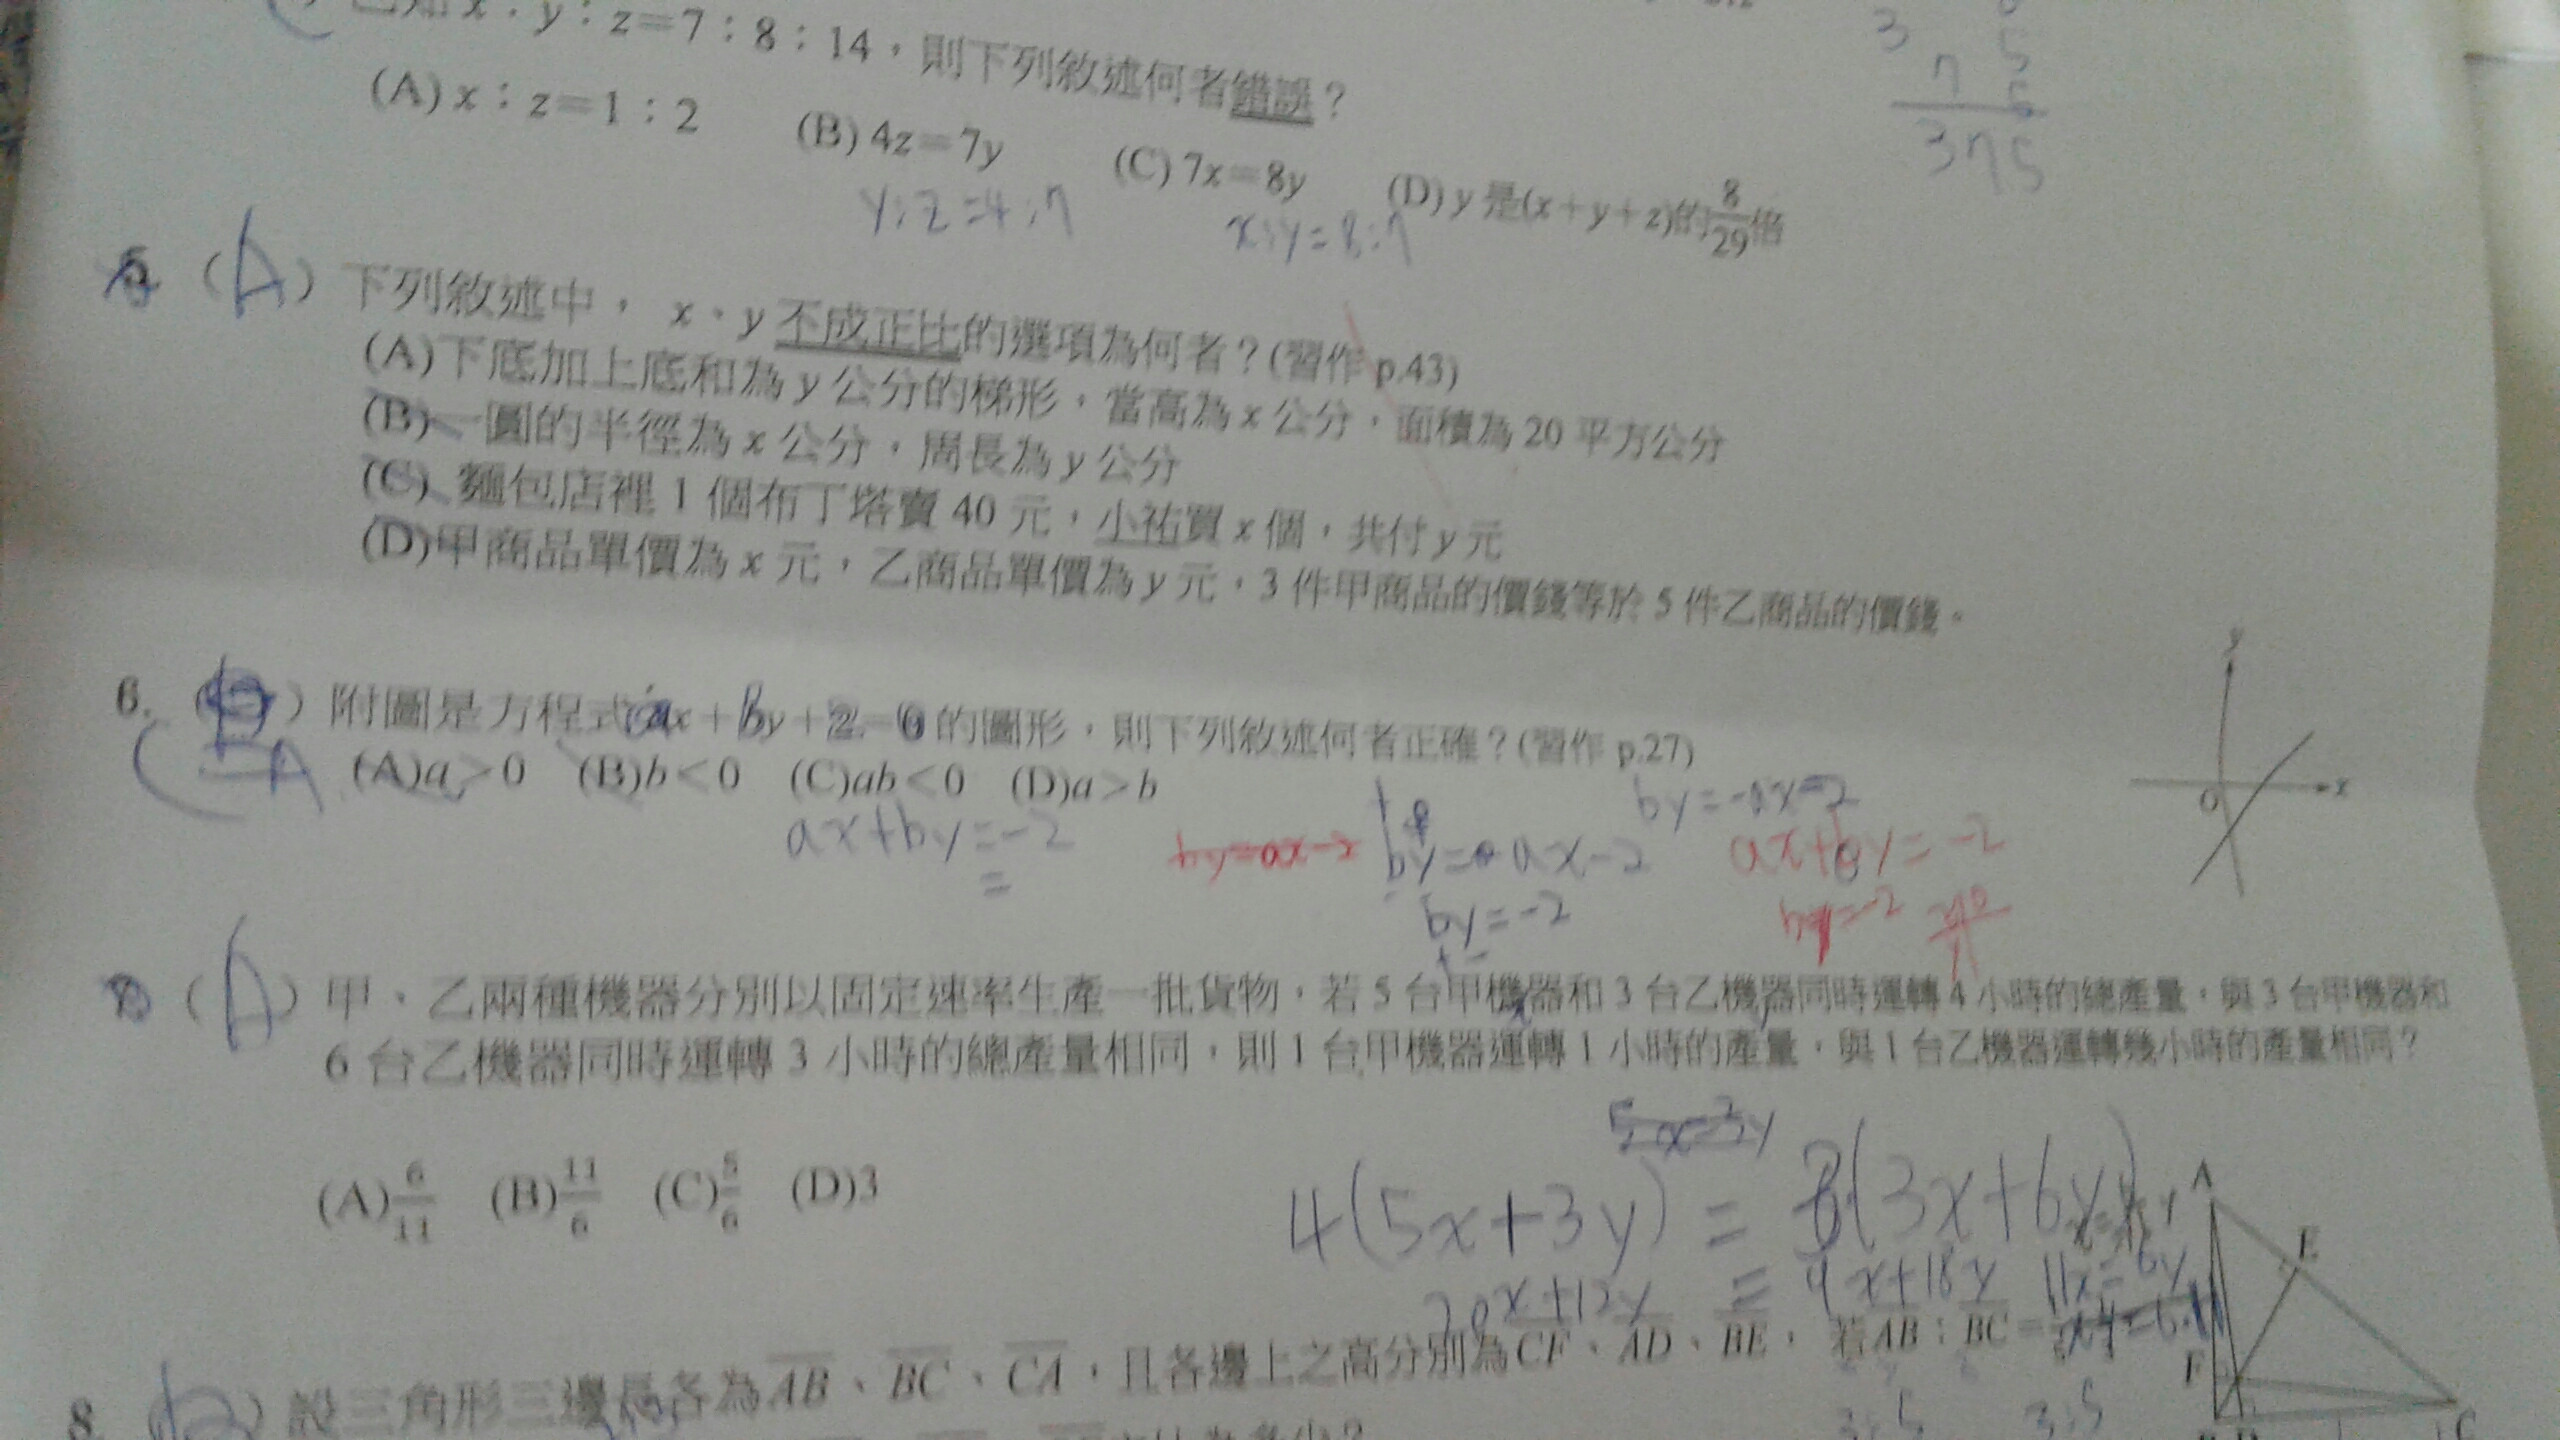 x：y：z=7：8：14，則下列敘述何者錯誤？
(A) x：z=1：2 (B) 4z=7y (C) 7x=8y (D) y 是(x+y+z)的8/29倍
y:z=4:7 x:y=8:7
3 7 5
(A) 下列敘述中， x、y 不成正比的選項為何者？(習作 p.43)
(A)下底加上底和為 y 公分的梯形，當高為 x 公分，面積為 20 平方公分
(B) 一圓的半徑為 x 公分，周長為 y 公分
(C) 麵包店裡 1 個布丁塔賣 40 元，小祐買 x 個，共付 y 元
(D)甲商品單價為 x 元，乙商品單價為 y 元，3 件甲商品的價錢等於 5 件乙商品的價錢。
6. 附圖是方程式 ax+by+2=0 的圖形，則下列敘述何者正確？(習作 p.27)
A (A)a>0 (B)b<0 (C)ab<0 (D)a>b
y
x
O
by=-ax-2
ax+by=-2 by=ax-2 by=ax-2 ax+by=-2
= by=-2 by=-2
(A) 甲、乙兩種機器分別以固定速率生產一批貨物，若 5 台甲機器和 3 台乙機器同時運轉 4 小時的總產量，與 3 台甲機器和
6 台乙機器同時運轉 3 小時的總產量相同，則 1 台甲機器運轉 1 小時的產量，與 1 台乙機器運轉幾小時的產量相同？
5x=3y
(A)6/11 (B)11/6 (C)5/6 (D)3
4(5x+3y)=3(3x+6y)
20x+12y = 9x+18y 11x=6y
A
E
F
C
8. 設三角形三邊長各為AB、BC、CA，且各邊上之高分別為CF、AD、BE，若AB：BC=
3:5 3:5